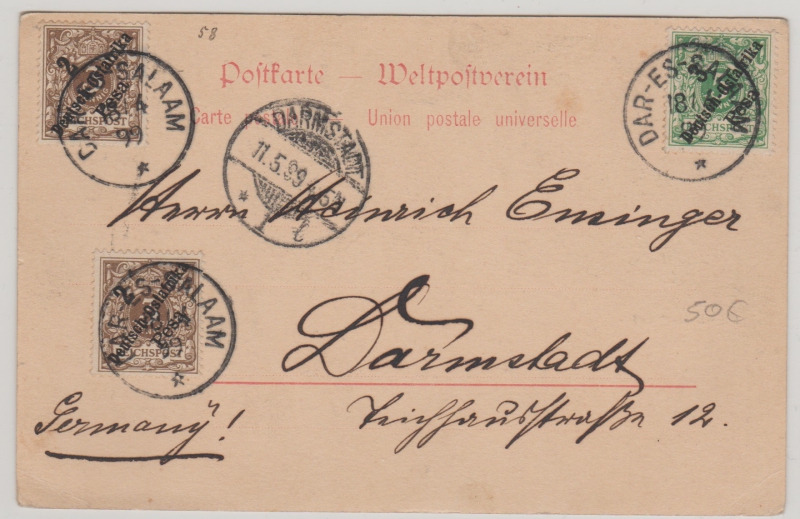 58
Postkarte — Weltpostverein
Carte postale Union postale universelle
2 Deutsch-Ostafrika Pesa
REICHSPOST
DAR-ES-SALAAM
4
99
DARMSTADT
11.5.99
3
Deutsch-Ostafrika
Pesa
REICHSPOST
DAR-ES-S
18
Herrn Heinrich Ensinger
2 Deutsch-Ostafrika Pesa
REICHSPOST
DAR-ES-SALAAM
50€
Darmstadt
Teichhausstraße 12.
Germany!